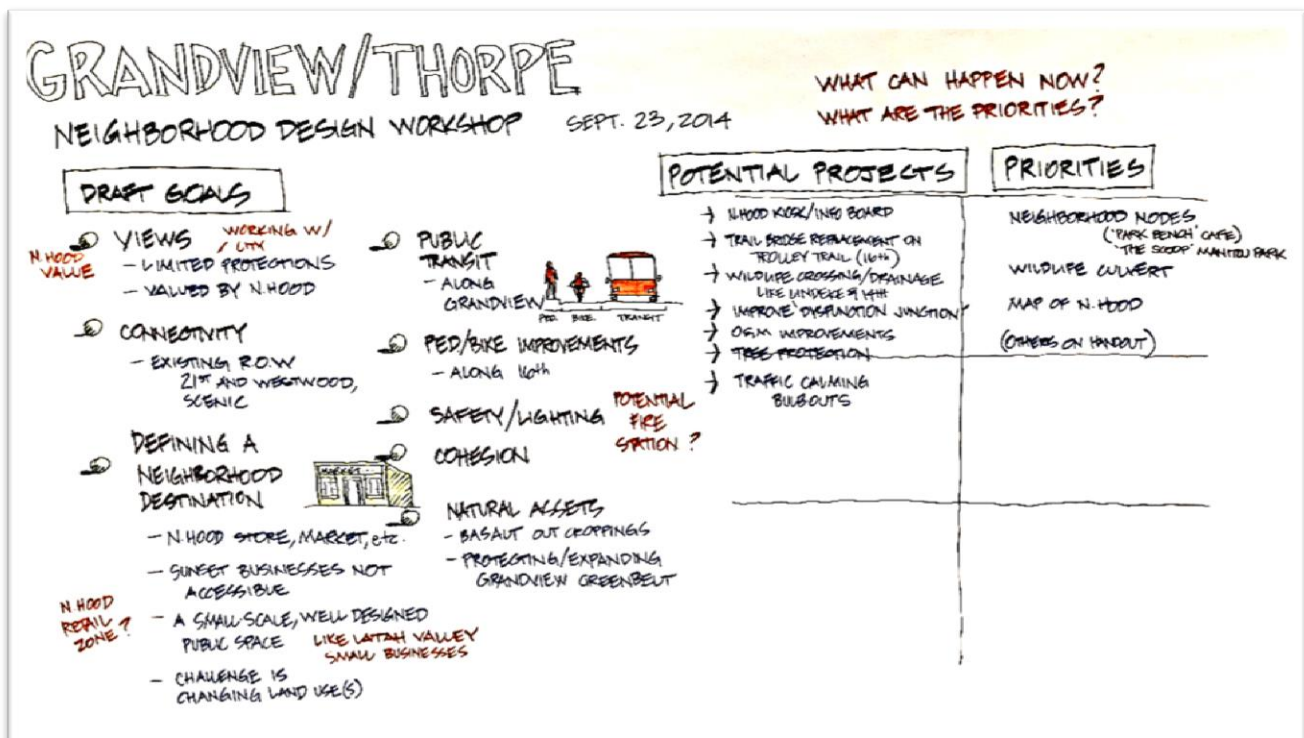 GRANDVIEW/THORPE
NEIGHBORHOOD DESIGN WORKSHOP SEPT. 23, 2014
WHAT CAN HAPPEN NOW?
WHAT ARE THE PRIORITIES?
DRAFT GOALS
VIEWS
WORKING W/
CITY
N.HOOD
VALUE
– LIMITED PROTECTIONS
– VALUED BY N.HOOD
CONNECTIVITY
– EXISTING R.O.W
21ST AND WESTWOOD,
SCENIC
DEFINING A
NEIGHBORHOOD
DESTINATION
MARKET
– N.HOOD STORE, MARKET, etc.
– SUNSET BUSINESSES NOT
ACCESSIBLE
N.HOOD
RETAIL
ZONE?
– A SMALL-SCALE, WELL DESIGNED
PUBLIC SPACE
LIKE LATAH VALLEY
SMALL BUSINESSES
– CHALLENGE IS
CHANGING LAND USE(S)
PUBLIC
TRANSIT
– ALONG
GRANDVIEW
PED. BIKE. TRANSIT
PED/BIKE IMPROVEMENTS
– ALONG 16th
SAFETY/LIGHTING
POTENTIAL
FIRE
STATION?
COHESION
NATURAL ASSETS
– BASALT OUT CROPPINGS
– PROTECTING/EXPANDING
GRANDVIEW GREENBELT
POTENTIAL PROJECTS
→ N.HOOD KIOSK/INFO BOARD
→ TRAIL BRIDGE REPLACEMENT ON
TROLLEY TRAIL (16th)
→ WILDLIFE CROSSING/DRAINAGE
LIKE LINDEKE & 14th
→ IMPROVE 'DYSFUNCTION JUNCTION'
→ IMPROVEMENTS
→ TREE PROTECTION
→ TRAFFIC CALMING
BULBOUTS
PRIORITIES
NEIGHBORHOOD NODES
('PARK BENCH' CAFE)
'THE SCOOP' MANITOU PARK
WILDLIFE CULVERT
MAP OF N.HOOD
(OTHERS ON HANDOUT)